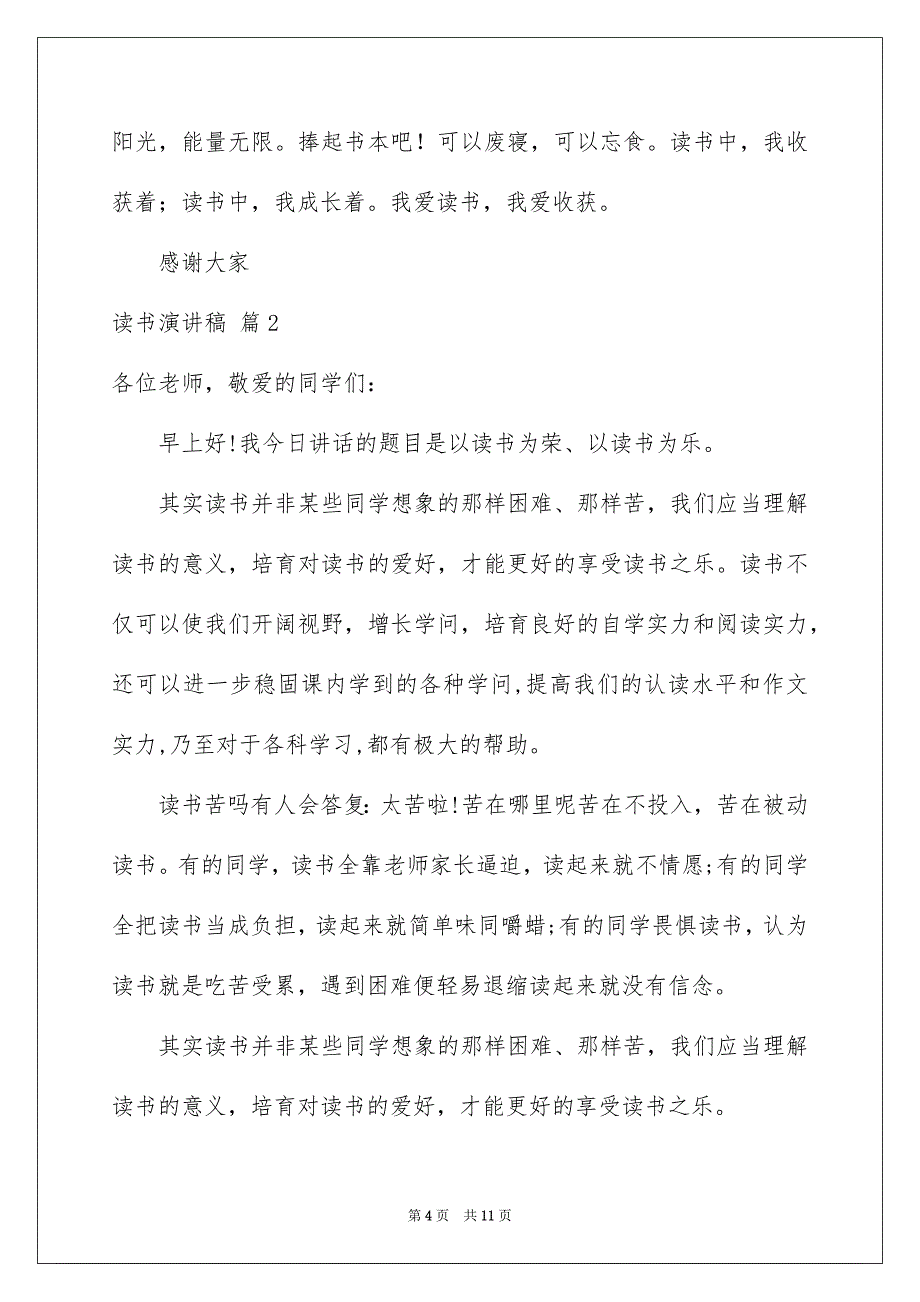 阳光，能量无限。捧起书本吧！可以废寝，可以忘食。读书中，我收
获着；读书中，我成长着。我爱读书，我爱收获。
感谢大家
读书演讲稿 篇2
各位老师，敬爱的同学们：
早上好!我今日讲话的题目是以读书为荣、以读书为乐。
其实读书并非某些同学想象的那样困难、那样苦，我们应当理解
读书的意义，培育对读书的爱好，才能更好的享受读书之乐。读书不
仅可以使我们开阔视野，增长学问，培育良好的自学实力和阅读实力，
还可以进一步稳固课内学到的各种学问,提高我们的认读水平和作文
实力,乃至对于各科学习,都有极大的帮助。
读书苦吗有人会答复：太苦啦!苦在哪里呢苦在不投入，苦在被动
读书。有的同学，读书全靠老师家长逼迫，读起来就不情愿;有的同学
全把读书当成负担，读起来就简单味同嚼蜡;有的同学畏惧读书，认为
读书就是吃苦受累，遇到困难便轻易退缩读起来就没有信念。
其实读书并非某些同学想象的那样困难、那样苦，我们应当理解
读书的意义，培育对读书的爱好，才能更好的享受读书之乐。
第 4 页 共 11 页